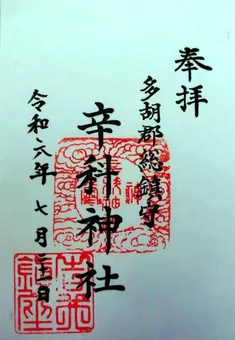 奉拝
多胡郡総鎮守
辛科神社
令和六年 七月二十二日